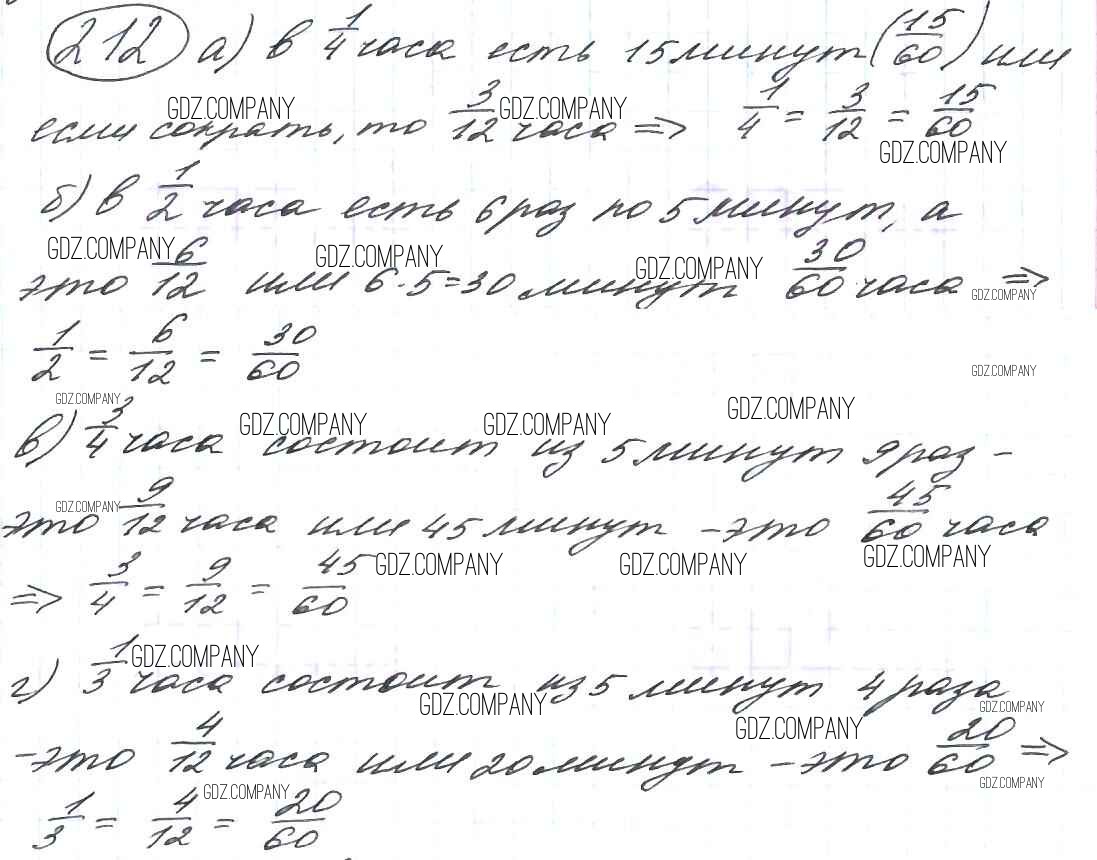 212 а) в 1/4 часа есть 15 минут (15/60) или
если сократь, то 3/12 часа => 1/4 = 3/12 = 15/60
GDZ.COMPANY GDZ.COMPANY GDZ.COMPANY
б) в 1/2 часа есть 6 раз по 5 минут, а
GDZ.COMPANY GDZ.COMPANY GDZ.COMPANY GDZ.COMPANY
это 6/12 или 6·5=30 минут 30/60 часа =>
1/2 = 6/12 = 30/60
GDZ.COMPANY
GDZ.COMPANY GDZ.COMPANY GDZ.COMPANY GDZ.COMPANY
в) 3/4 часа состоит из 5 минут 9 раз -
GDZ.COMPANY
это 9/12 часа или 45 минут - это 45/60 часа
GDZ.COMPANY GDZ.COMPANY GDZ.COMPANY
=> 3/4 = 9/12 = 45/60
GDZ.COMPANY
г) 1/3 часа состоит из 5 минут 4 раза
GDZ.COMPANY GDZ.COMPANY GDZ.COMPANY
- это 4/12 часа или 20 минут - это 20/60 =>
GDZ.COMPANY GDZ.COMPANY
1/3 = 4/12 = 20/60